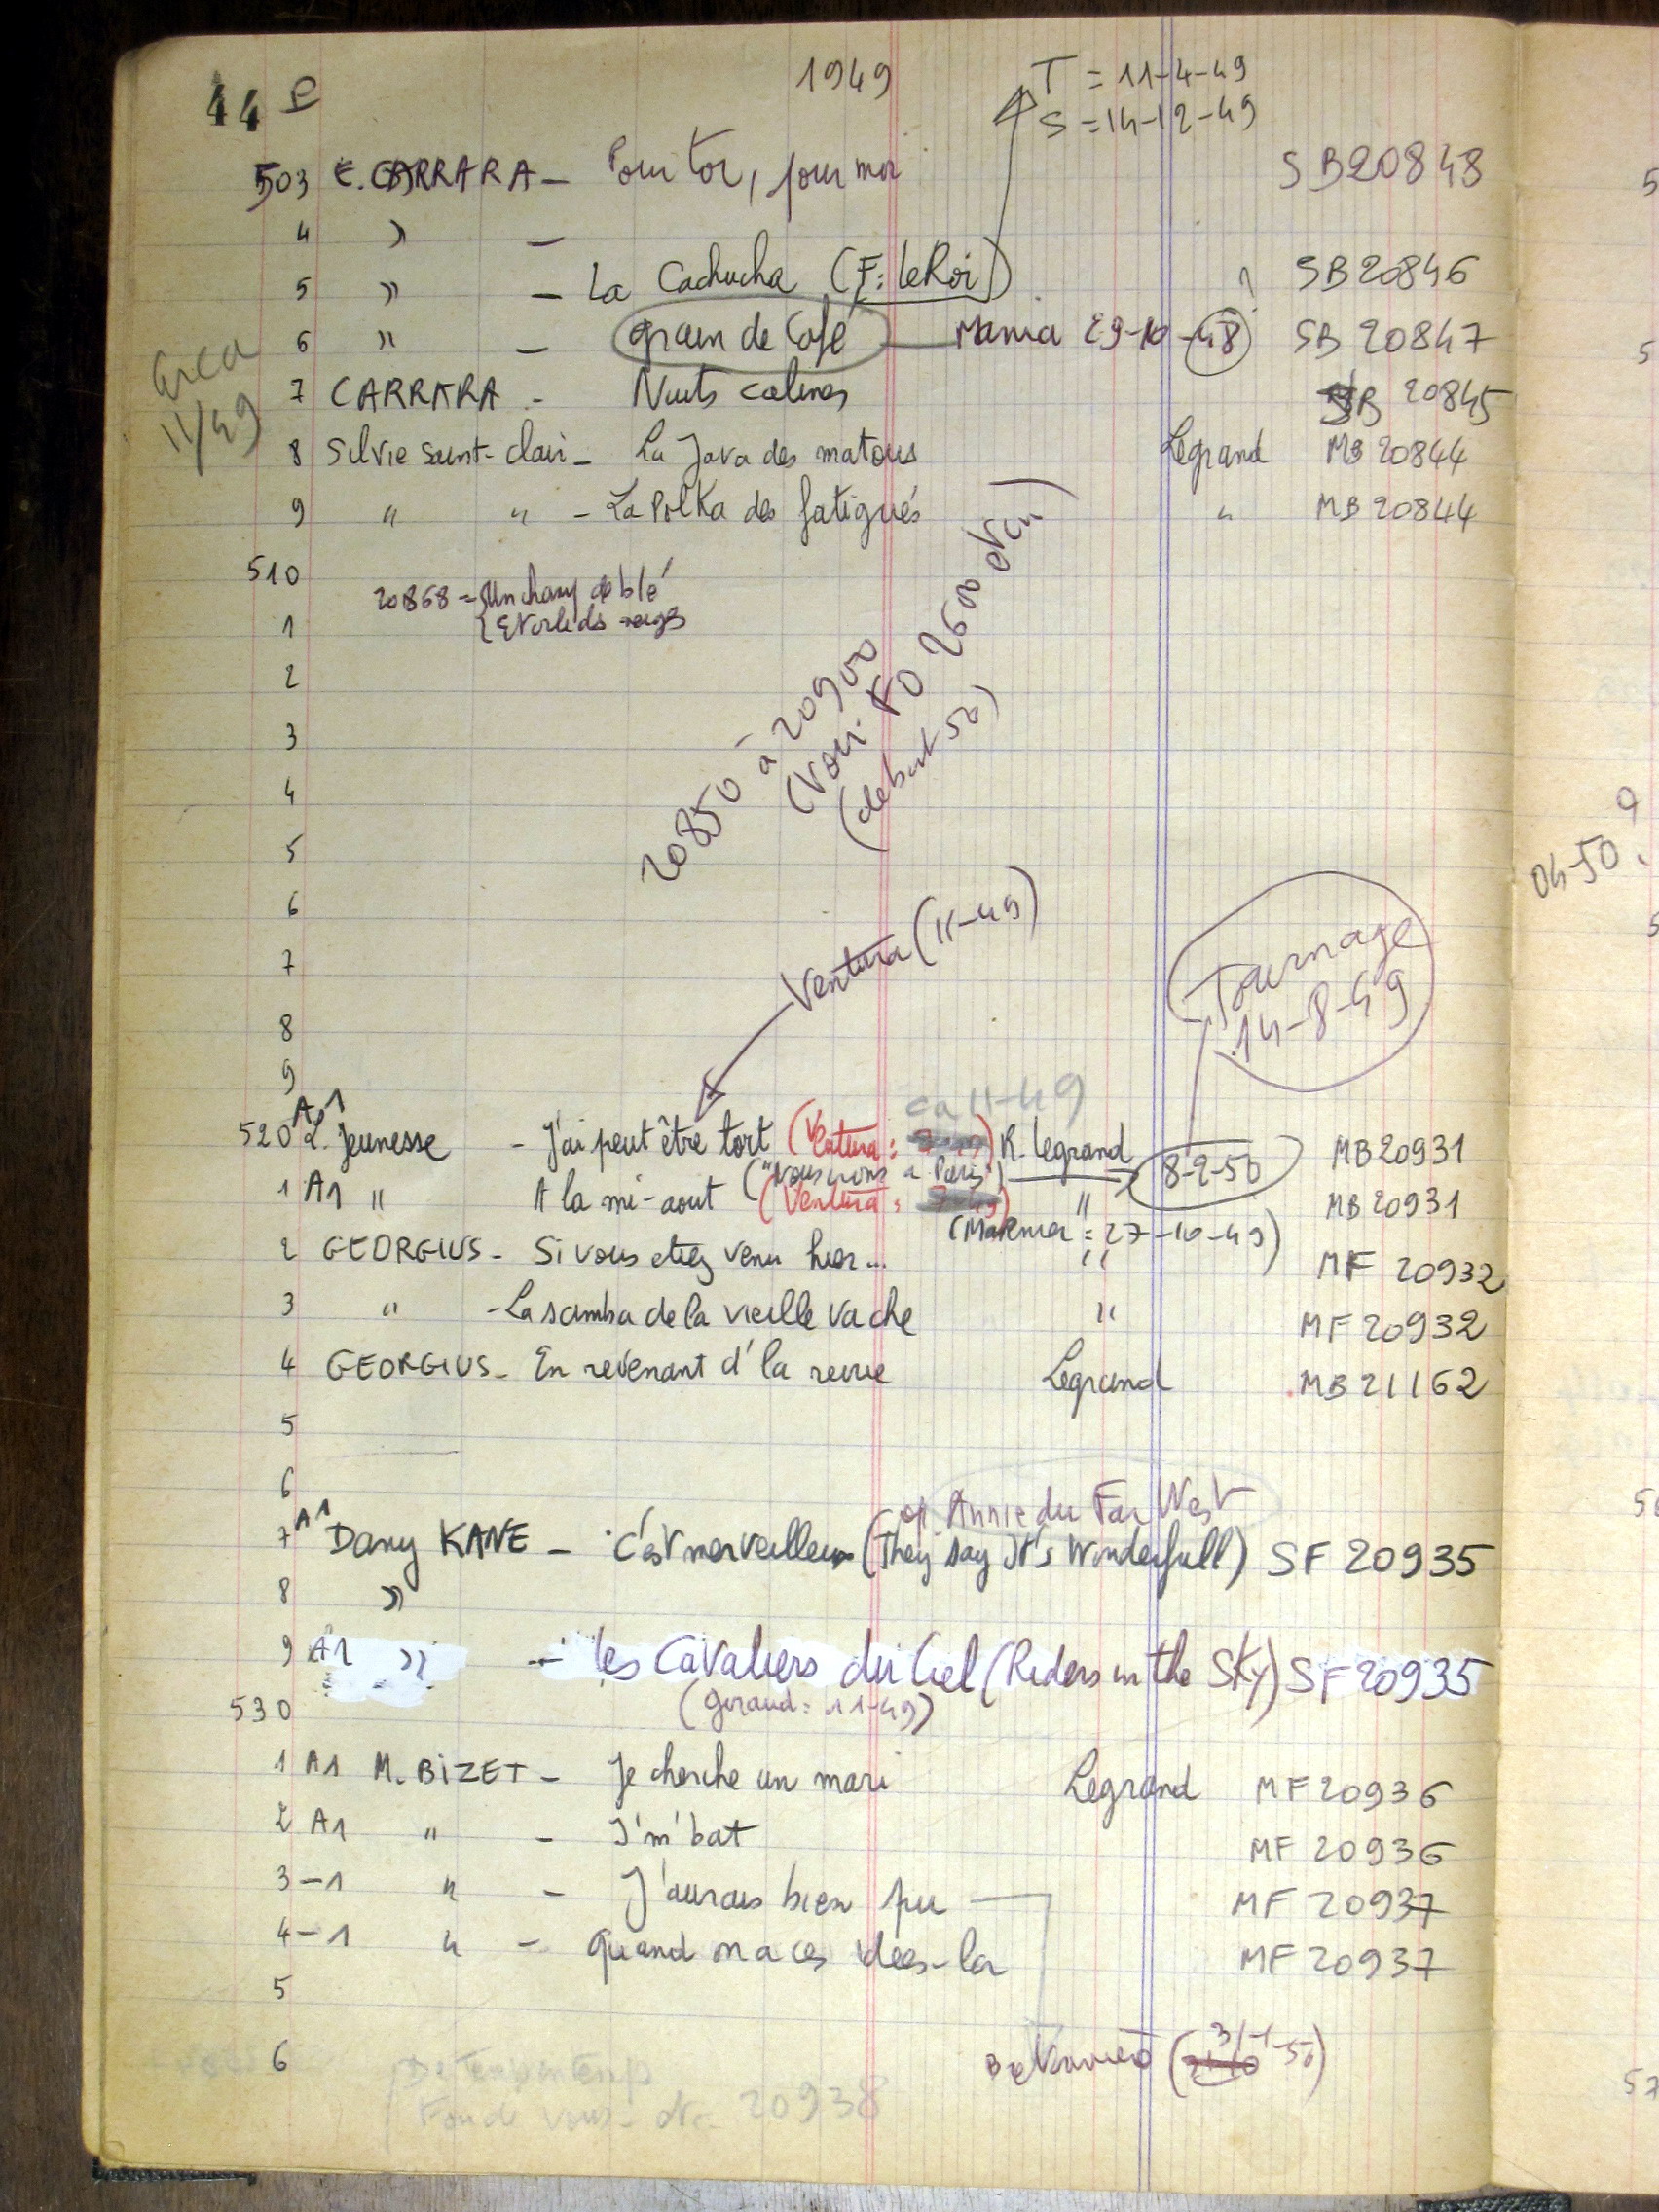 44 e
1949
T = 11-4-49
S = 14-12-49
503 E. CARRARA – Pour toi, pour moi SB20848
4 " –
5 " – La Cachucha (F: le Roi) SB20846
6 " – grain de café Mania 29-10-48 SB 20847
circa 11/49
7 CARRARA - Nuits calines SB 20845
8 Silvie Saint-Clair – La Java des matous Legrand MB 20844
9 " " – La Polka des fatigués " MB 20844
510
20868 = Un champ de blé
1 Etoile des neiges
2
3
20850 à 20900
(voir FO 2600 etc..)
(début 50)
4
5
6
7
8
9
Ventura (11-49)
Tournage
14-8-49
ca 11-49
520 A1 L. Jeunesse – J'ai peut être tort (Ventura: ) R. Legrand MB20931
("Nous irons à Paris") 8-2-50
1 A1 " A la mi-aout (Ventura: ) " MB 20931
(Marnier = 27-10-49)
2 GEORGIUS – Si vous etiez venu hier... " MF 20932
3 " – La samba de la vieille vache " MF 20932
4 GEORGIUS – En revenant d' la revue Legrand MB 21162
5
6
op Annie du Far West
7 A1 Dany KANE – C'est merveilleux (They say It's Wonderfull) SF 20935
8 "
9 A1 " – les Cavaliers du Ciel (Riders in the Sky) SF 20935
530 (Giraud: 11-49)
1 A1 M. BIZET – Je cherche un mari Legrand MF 20936
2 A1 " – J'm'bat MF 20936
3-1 " – J'aurais bien pu MF 20937
4-1 " – Quand on a ces idées-la MF 20937
5
6
(31-1-50)
20938
04-50